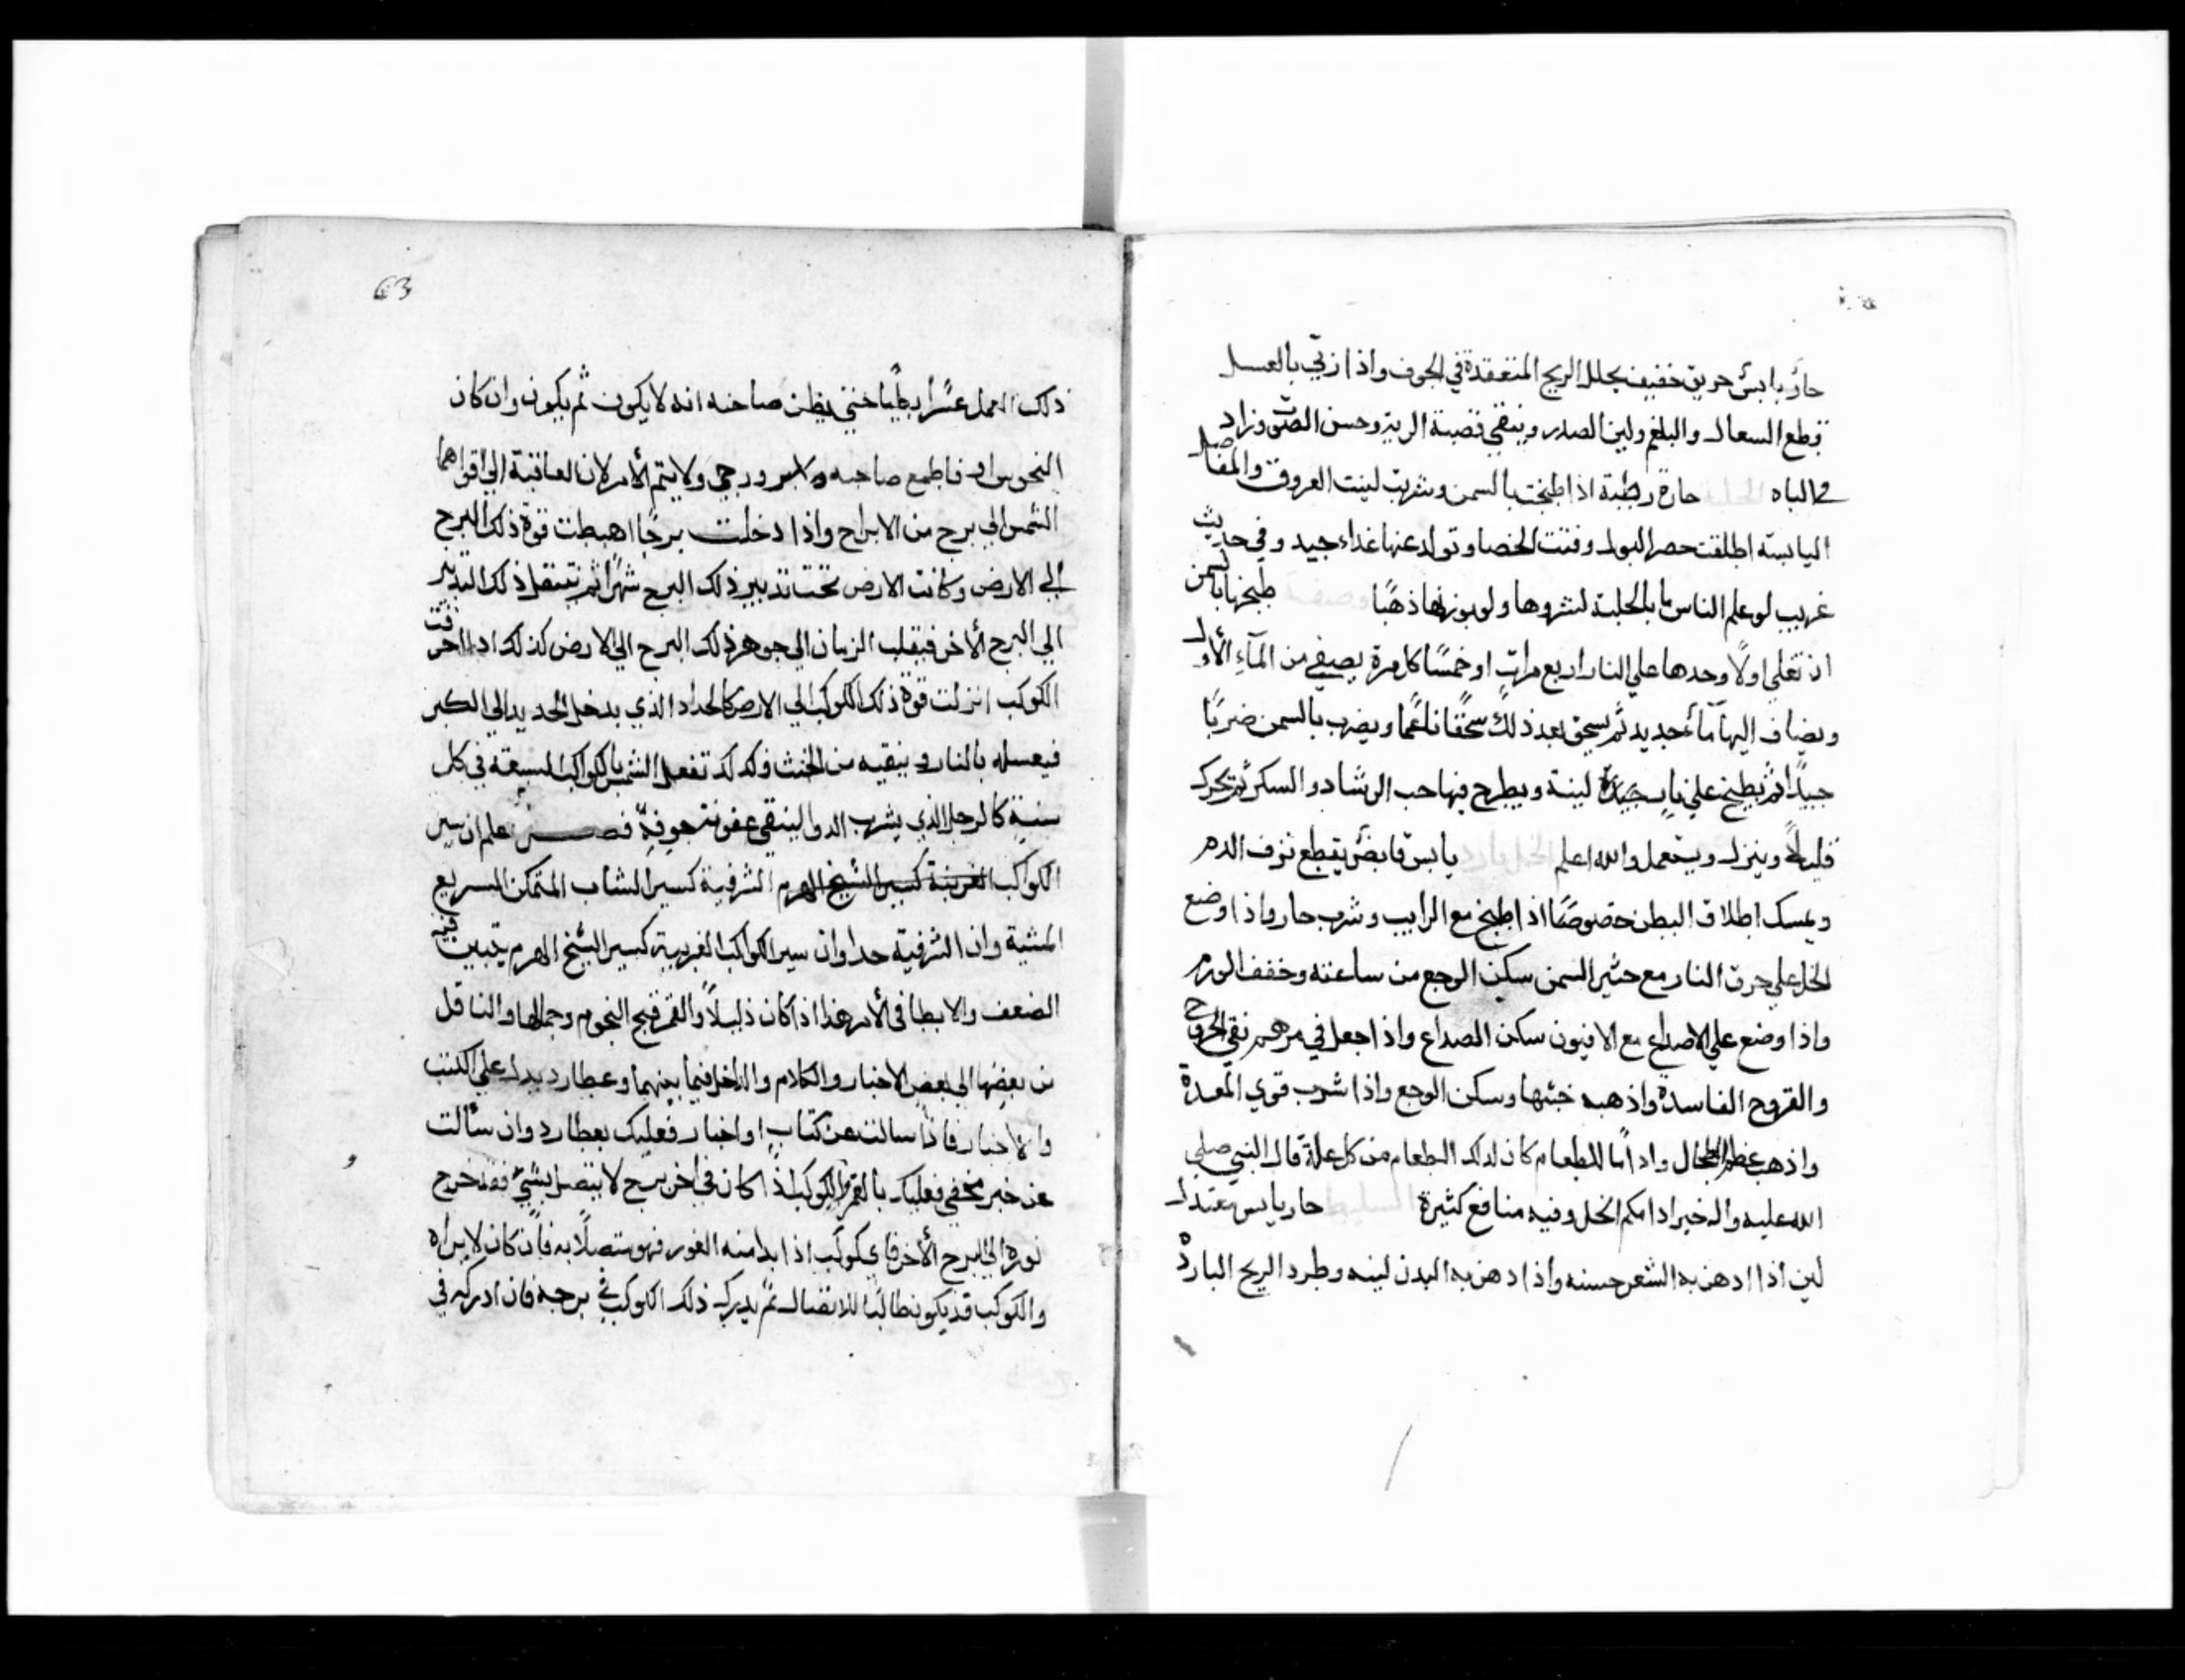 حار يابس حريق خفيف يحلل الريح المنعقدة في الجوف واذا ربي بالعسل
قطع السعال والبلغم ولين الصدر وينقي قصبة الرية وحسن الصوت وزاد
في الباه حارة رطبة اذا طبخت بالسمن وشربت لينت العروق والمفاصل
اليابسة اطلقت حصر البول وفتت الحصا وتولد عنها غداء جيد وفي حديث
غريب لو علم الناس ما بالحلبة لشروها ولو بوزنها ذهبًا طبخها بالسمن
ان تغلي اولًا وحدها علي النار اربع مرات او خمسًا كل مرة يصفي من المآء الأول
ويضاف اليها مآء جديد ثم يسحق بعد ذلك سحقًا ناعمًا ويضرب بالسمن ضربًا
جيدًا ثم يطبخ علي نار جيدة لينة ويطرح فيها حب الرشاد والسكر ثم تحرك
قليلًا وينزل ويستعمل والله اعلم الخل بارد يابس قابض يقطع نزف الدم
ويمسك اطلاق البطن خصوصًا اذا طبخ مع الرايب وشرب حار واذا وضع
الخل علي حرق النار مع حثير السمن سكن الوجع من ساعته وخفف الورم
واذا وضع علي الاصداع مع الافيون سكن الصداع واذا جعل في مرهم نقي الجروح
والقروح الفاسدة واذهب خبثها وسكن الوجع واذا شرب قوي المعدة
واذهب عظم الطحال واداما للطعام كان لذلك الطعام من كل علة قال النبي صلي
الله عليه واله خير ادامكم الخل وفيه منافع كثيرة السليط حار يابس معتدل
لين اذا ادهن به الشعر حسنه واذا دهن به البدن لينه وطرد الريح البارد
63
ذلك العمل عسرًا بطيًا حتي يظن صاحبه انه لا يكون ثم يكون وان كان
النحس فاطمع صاحبه ورجي ولا يتم الأمر لان العاقبة الي اقواهما
الشمس الي برج من الابراج واذا دخلت برجًا اهبطت قوة ذلك البرج
الي الارض وكانت الارض تحت تدبير ذلك البرج شهرًا ثم ينتقل ذلك التدبير
الي البرج الأخر فينقلب الزمان الي جوهر ذلك البرج الي الارض كذلك اذا احرقت
الكوكب انزلت قوة ذلك الكوكب الي الارض كالحداد الذي يدخل الحديد الي الكير
فيغسله بالنار وينقيه من الخبث وكذلك تفعل الشمس بالكواكب السبعة في كل
سنة كالرجل الذي يشرب الدوا لينقي عفونة جوفه فصل علم ان سير
الكواكب الغربية كسير الشيخ الهرم الشرقية كسير الشاب المتمكن السريع
المشية وان الشرقية حدا وان سير الكواكب الغربية كسير الشيخ الهرم يتبين فيه
الضعف والابطا في الأمر هذا اذا كان ذليلًا والقمر فيح النجوم وجمالها والناقل
من بعضها الي بعض الاخبار والكلام والداخل فيما بينهما وعطارد يدل علي الكتب
والاخبار فاذا سالت عن كتاب او اخبار فعليك بعطارد وان سألت
عن خبر مخفي فعليك بالقمر الكوكب اذا كان في اخر برج لا يتصل بشيء فقد خرج
نوره الي البرج الأخر فاي كوكب اذا بدا منه الغور فهو متصلًا به فان كان لا يراه
والكوكب قد يكون طالبًا للاتصال ثم يدرك ذلك الكوكب في برجه فان ادركه في